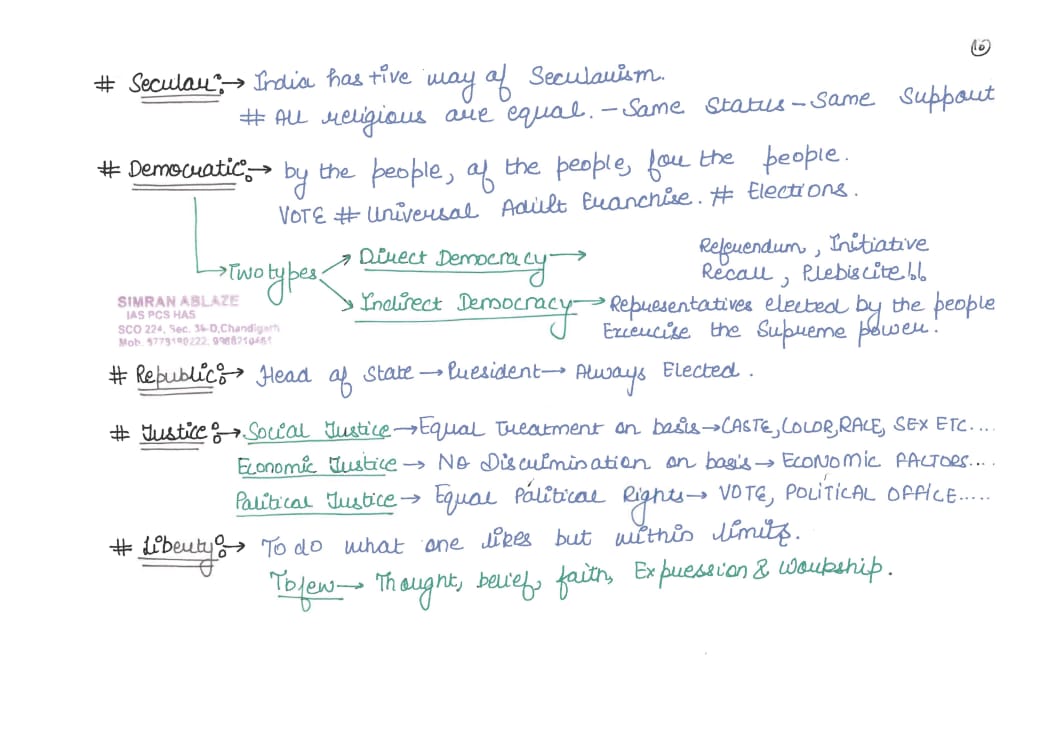 10
# Secular :→ India has +ive way of Secularism.
# All religious are equal. – Same Status – Same Support
# Democratic :→ by the people, of the people, for the people.
VOTE # Universal Adult Franchise. # Elections.
→ Two types → Direct Democracy → Referendum, Initiative
Recall, Plebiscite !!
→ Indirect Democracy → Representatives elected by the people
Excercise the Supreme power.
SIMRAN ABLAZE
IAS PCS HAS
SCO 224, Sec. 34-D, Chandigarh
# Republic :→ Head of State → President → Always Elected.
# Justice :→ Social Justice → Equal Treatment on basis → CASTE, COLOR, RACE, SEX ETC....
Economic Justice → No Discrimination on basis → ECONOMIC FACTORS....
Political Justice → Equal Political Rights → VOTE, POLITICAL OFFICE.....
# Liberty :→ To do what one likes but within limits.
Tbfew → Thought, belief, faith, Expression & Workship.